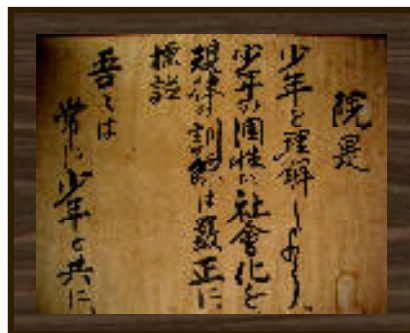 院是
少年を理解しよう、
少年の個性に社會化を
規律の訓練は厳正に
標語
吾々は
常に少年と共に、